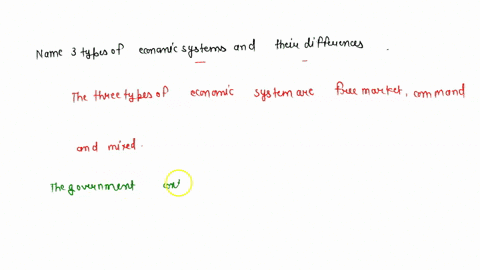 Name 3 types of economic systems and their differences .
The three types of economic system are free market, command
and mixed.
The government cont